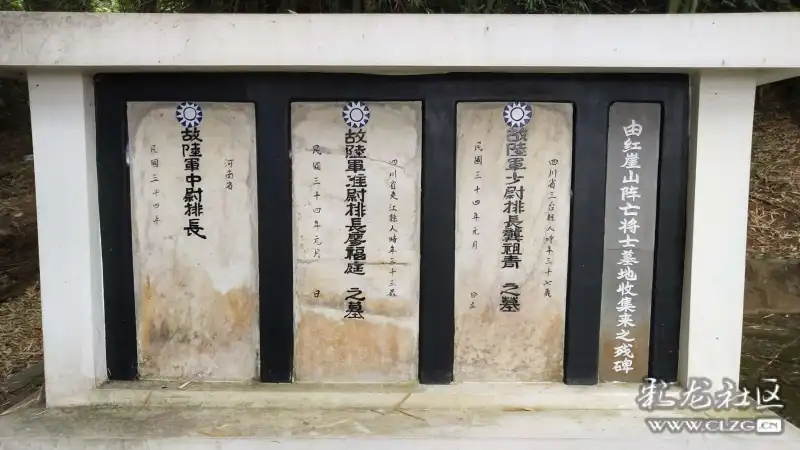 由红崖山阵亡将士墓地收集来之残碑
四川省三台縣人時年三十七歲
故陸軍少尉排長龔祖青之墓
民國三十四年元月 日立
四川省夾江縣人時年三十三歲
故陸軍准尉排長廖福庭之墓
民國三十四年元月 日
河南省
故陸軍中尉排長
民國三十四年
彩龙社区
WWW.CLZG.CN